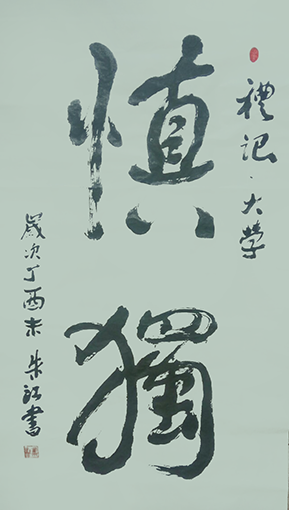 禮記·大学
慎
獨
歲次丁酉末 朱江書